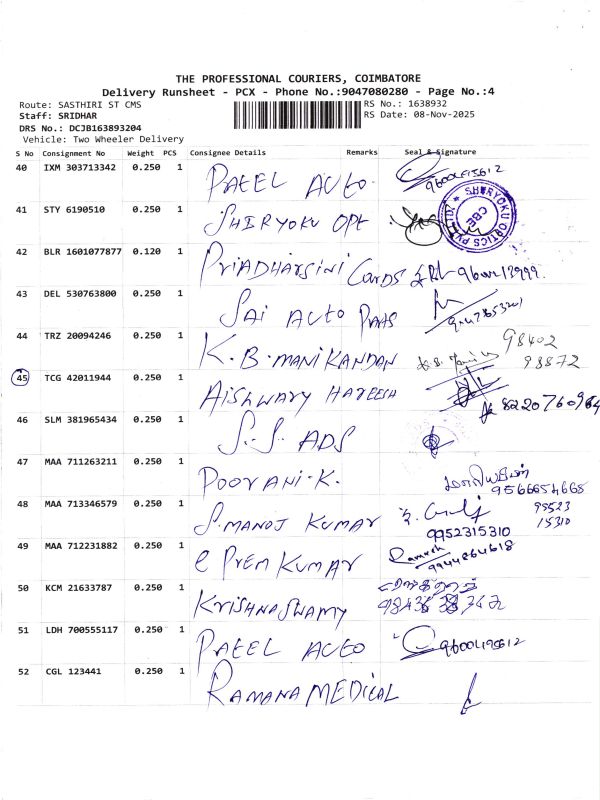 THE PROFESSIONAL COURIERS, COIMBATORE
Delivery Runsheet - PCX - Phone No.:9047080280 - Page No.:4
Route: SASTHIRI ST CMS RS No.: 1638932
Staff: SRIDHAR RS Date: 08-Nov-2025
DRS No.: DCJB163893204
Vehicle: Two Wheeler Delivery
S No Consignment No Weight PCS Consignee Details Remarks Seal & Signature
40 IXM 303713342 0.250 1 PATEL AUTO
41 STY 6190510 0.250 1 SHIRYOKU OPT SHIRYOKU OPTICS PVT LTD CBE
42 BLR 1601077877 0.120 1 PRIADHARSINI CARDS
43 DEL 530763800 0.250 1 SAI AUTO PARTS
44 TRZ 20094246 0.250 1 K.B. MANIKANDAN 98402
98872
45 TCG 42011944 0.250 1 AISHWARY HAREESH 8220760964
46 SLM 381965434 0.250 1 S.S. ADS
47 MAA 711263211 0.250 1 POORANI.K. 9566654665
48 MAA 713346579 0.250 1 S.MANOJ KUMAR 99523
15310
9952315310
49 MAA 712231882 0.250 1 C PREM KUMAR Ramesh
9944864618
50 KCM 21633787 0.250 1 KRISHNASWAMY
51 LDH 700555117 0.250 1 PATEL AUTO
52 CGL 123441 0.250 1 RAMANA MEDICAL